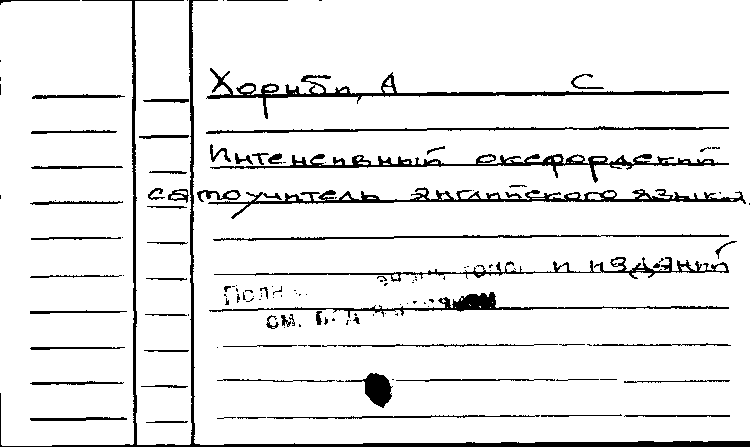 Хорнби, А С
Интенсивный оксфордский
самоучитель английского языка
и изданий
см.